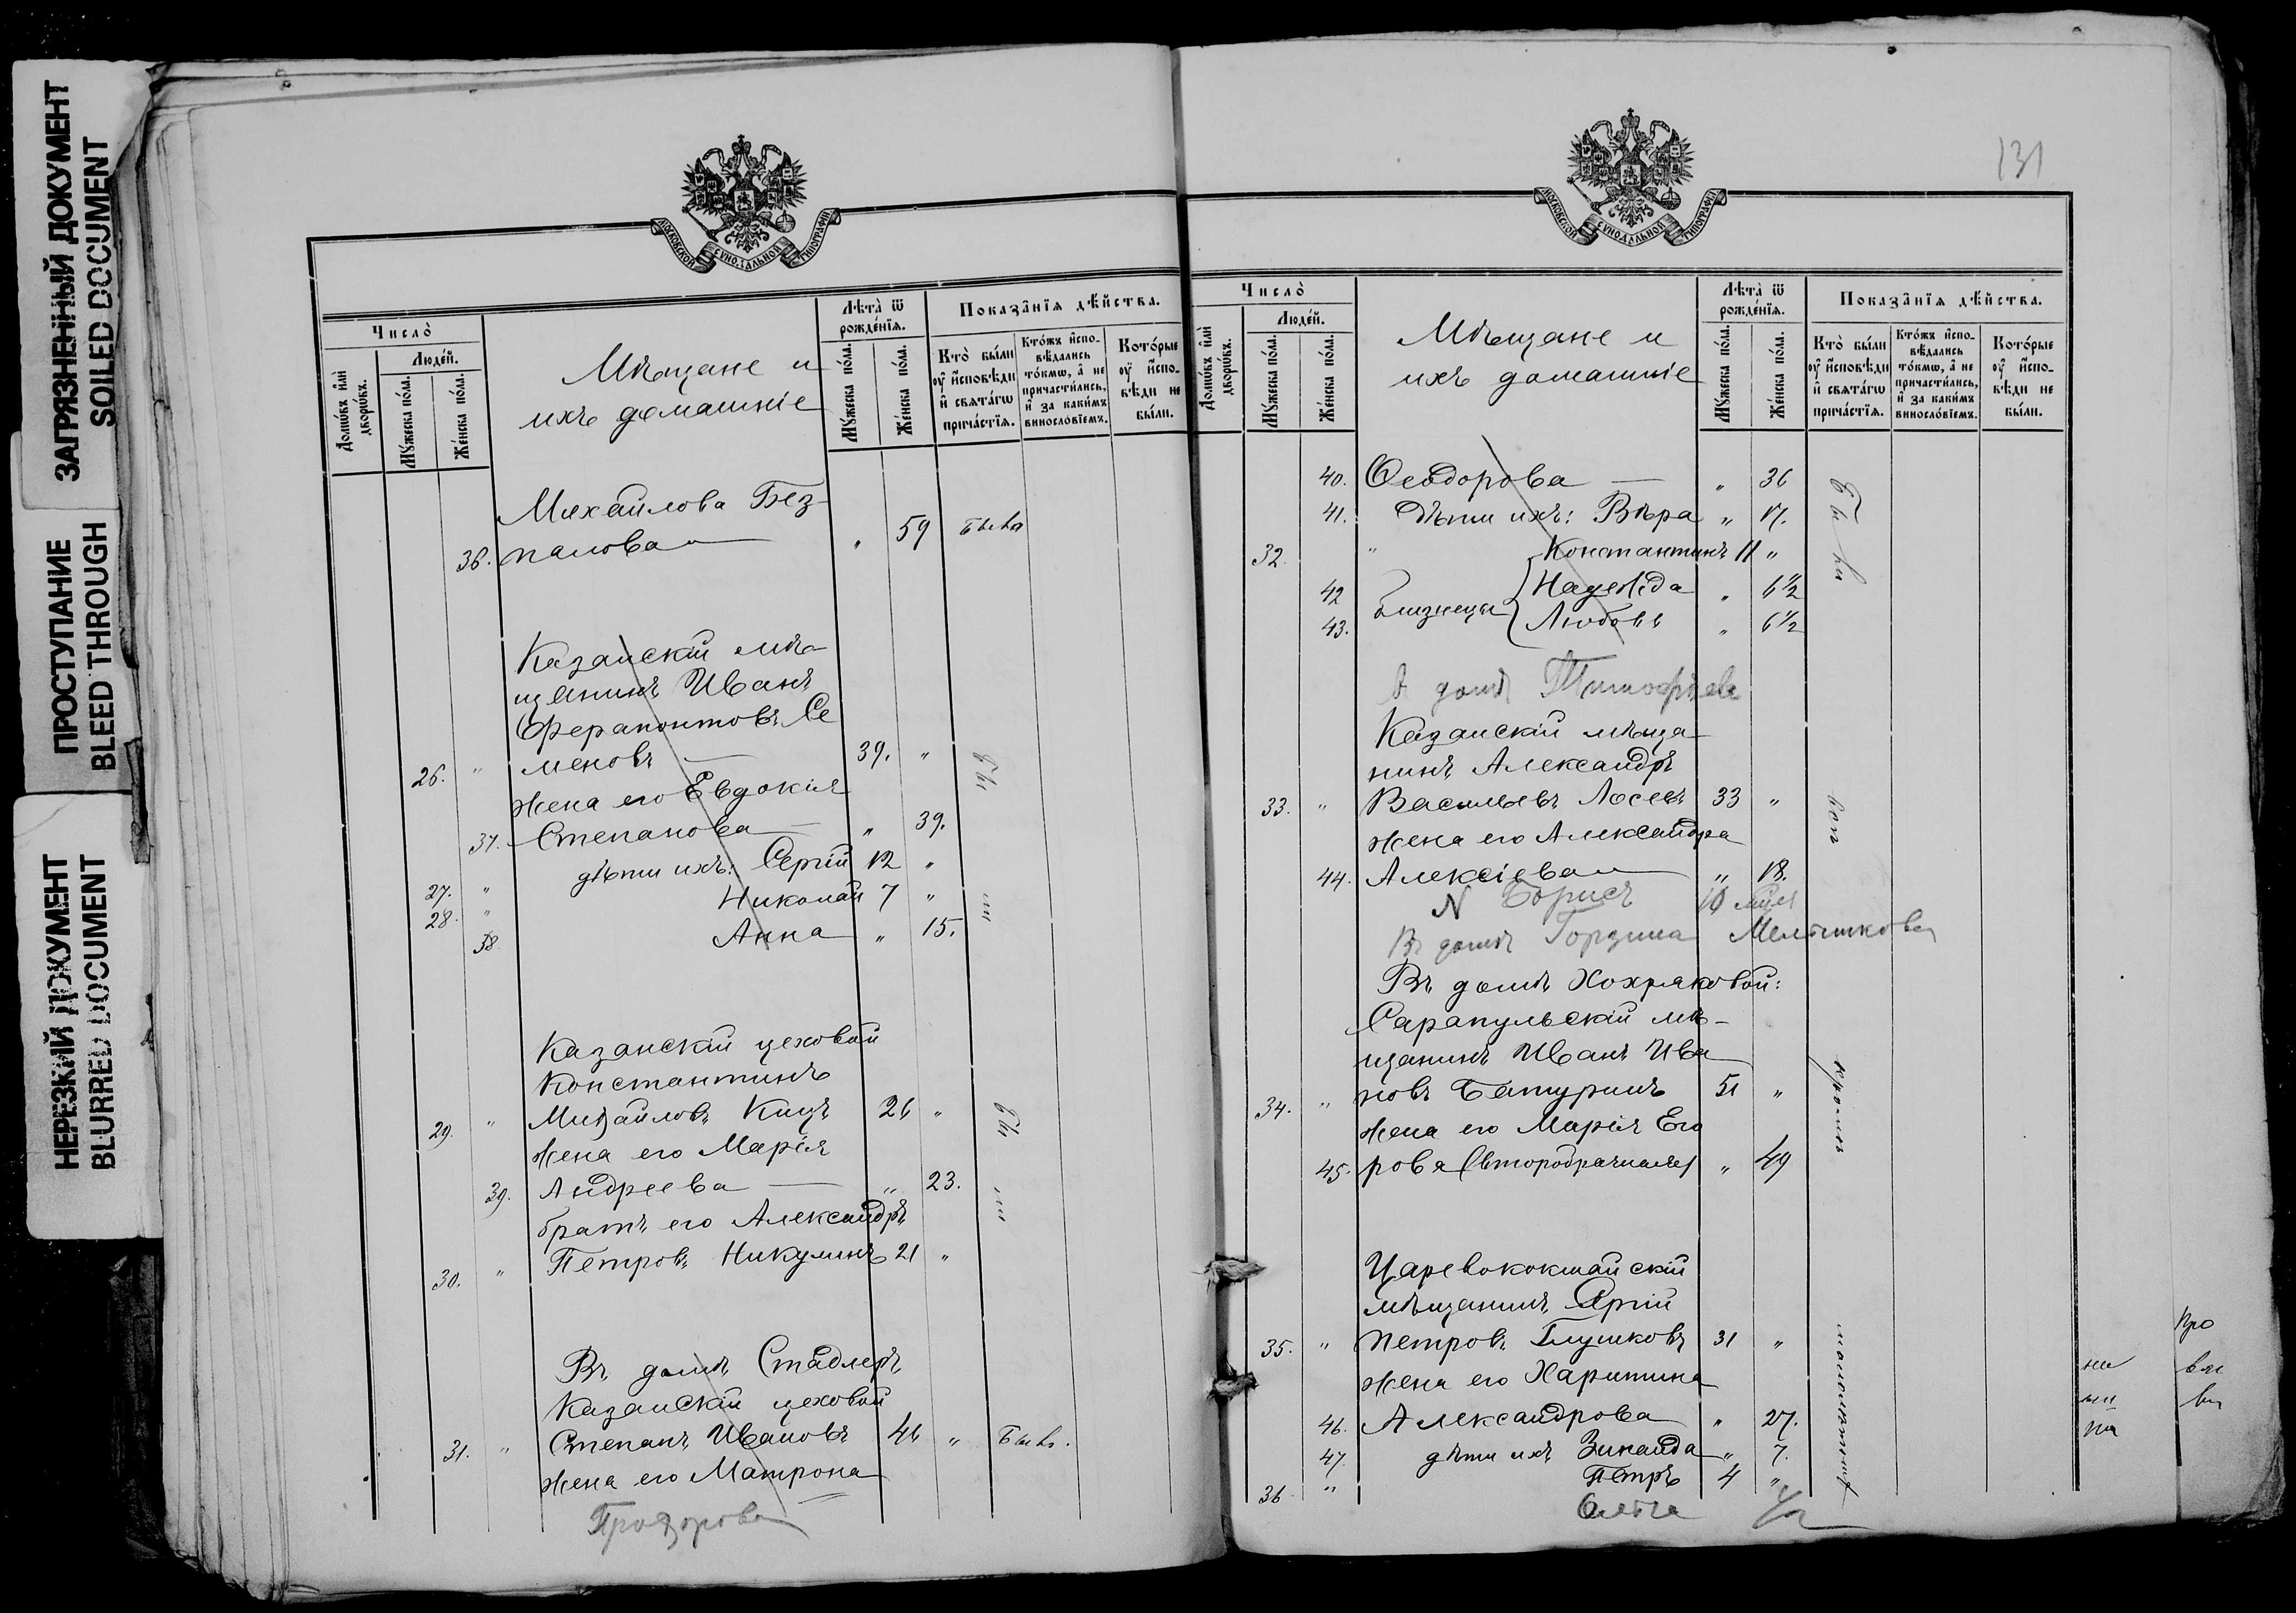 ЗАГРЯЗНЕННЫЙ ДОКУМЕНТ
SOILED DOCUMENT
ПРОСТУПАНИЕ
BLEED THROUGH
НЕРЕЗКИЙ ДОКУМЕНТ
BLURRED DOCUMENT
МОСКОВСКОЙ СѴНОДАЛЬНОЙ ТИПОГРАФІИ
Число̀
Домѡ́въ и҆лѝ дворѡ́въ.
Люде́й.
Мꙋ́жеска по́ла.
Же́нска по́ла.
Мѣщане и
ихъ домашніе
Лѣта̀ ѿ рожде́нїѧ.
Мꙋ́жеска по́ла.
Же́нска по́ла.
Показа̑нїѧ дѣ́йства.
Кто̀ бы́ли ᲂу҆ и҆сповѣди и҆ свѧта́гѡ прича́стїѧ.
Кто́жъ и҆спо-
вѣдались
то́кмѡ, а҆ не
причасти́лись,
и҆ за каки́мъ
винослѡ́вїемъ.
Кото́рые ᲂу҆ и҆спо-
вѣди не
бы́ли.
Михайлова Без-
36. палова — " 59 была
Казанскій мѣ-
щанинъ Иванъ
Ферапонтовъ Се
26. " меновъ — 39. "
жена его Евдокія
37. Степанова — " 39.
27. " дѣти ихъ: Сергій 12 "
28. " Николай 7 "
38 Анна " 15.
бы
ли
Казанскій цеховой
Константинъ
29. " Михайловъ Кицъ 26 "
жена его Марія
39. Андреева — " 23.
братъ его Александръ
30. " Петровъ Никулинъ 21 "
бы
ли
Въ домѣ Стадлеръ
Казанскій цеховой
31. " Степанъ Ивановъ 46 " Былъ.
жена его Матрона
Прозорова
131
МОСКОВСКОЙ СѴНОДАЛЬНОЙ ТИПОГРАФІИ
Число̀
Домѡ́въ и҆лѝ дворѡ́въ.
Люде́й.
Мꙋ́жеска по́ла.
Же́нска по́ла.
Мѣщане и
ихъ домашніе
Лѣта̀ ѿ рожде́нїѧ.
Мꙋ́жеска по́ла.
Же́нска по́ла.
Показа̑нїѧ дѣ́йства.
Кто̀ бы́ли ᲂу҆ и҆сповѣди и҆ свѧта́гѡ прича́стїѧ.
Кто́жъ и҆спо-
вѣдались
то́кмѡ, а҆ не
причасти́лись,
и҆ за каки́мъ
винослѡ́вїемъ.
Кото́рые ᲂу҆ и҆спо-
вѣди не
бы́ли.
40. Ѳеодорова — " 36
41. Дѣти ихъ: Вѣра " 17.
32. " Константинъ 11 "
42 Близнецы Надежда " 6 1/2
43. Любовь " 6 1/2
Были
В домѣ Тимофѣева
Казанскій мѣща-
нинъ Александръ
33. " Васильевъ Лосевъ 33 "
жена его Александра
44. Алексіева — " 18.
N Борисъ 10
Въ домѣ Гордина Мельникова
Въ домѣ Хохряковой:
Сарапульскій мѣ-
щанинъ Иванъ Ива
34. " новъ Батуринъ 51 "
жена его Марія Его
45. рова (второбрачная) " 49
кромѣ
Царевококшайскій
мѣщанинъ Сергій
35. " Петровъ Глушковъ 31 "
жена его Харитина
46. Александрова " 27.
47. дѣти ихъ Зинаида " 7.
36 " Петръ 4 "
Ольга 1/2